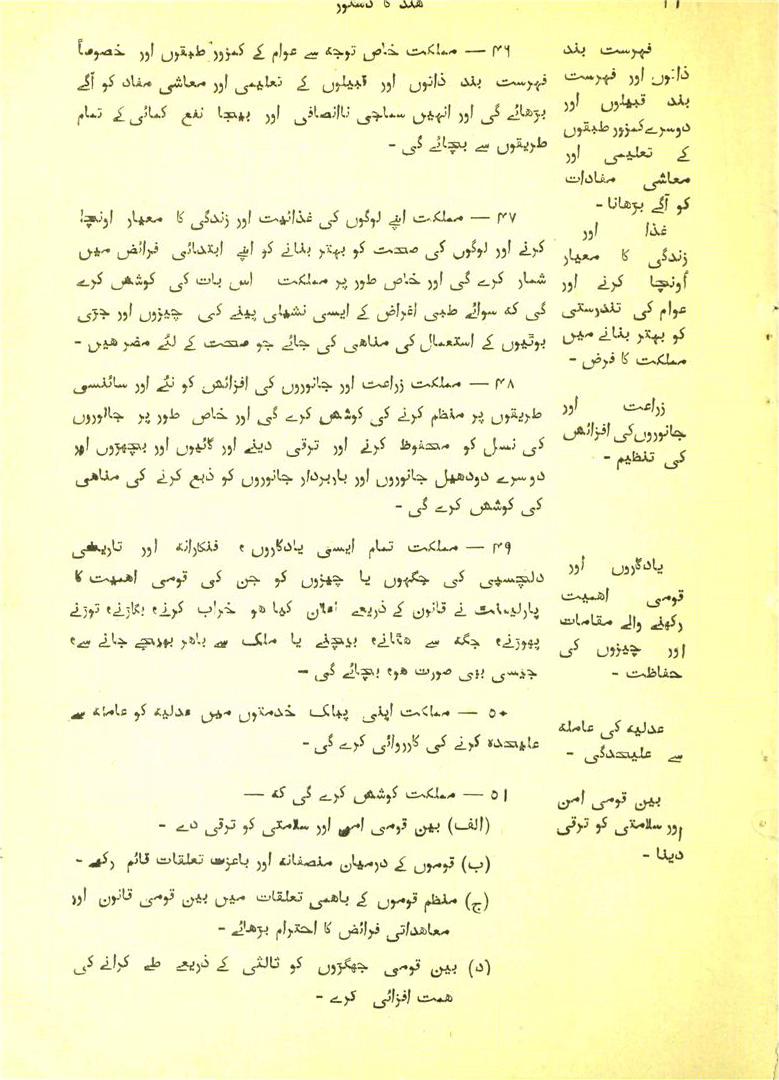 ہند کا دستور
۴۶ — مملکت خاص توجہ سے عوام کے کمزور طبقوں اور خصوصاً
فہرست بند ذاتوں اور قبیلوں کے تعلیمی اور معاشی مفاد کو آگے
بڑھائے گی اور انہیں سماجی ناانصافی اور بیجا نفع کمائی کے تمام
طریقوں سے بچائے گی -
فہرست بند
ذاتوں اور فہرست
بند قبیلوں اور
دوسرے کمزور طبقوں
کے تعلیمی اور
معاشی مفادات
کو آگے بڑھانا -
۴۷ — مملکت اپنے لوگوں کی غذائیت اور زندگی کا معیار اونچا
کرنے اور لوگوں کی صحت کو بہتر بنانے کو اپنے ابتدائی فرائض میں
شمار کرے گی اور خاص طور پر مملکت اس بات کی کوشش کرے
گی کہ سوائے طبی اغراض کے ایسی نشیلی پینے کی چیزوں اور جڑی
بوٹیوں کے استعمال کی مناہی کی جائے جو صحت کے لئے مضر ہیں -
غذا اور
زندگی کا معیار
اُونچا کرنے اور
عوام کی تندرستی
کو بہتر بنانے میں
مملکت کا فرض -
۴۸ — مملکت زراعت اور جانوروں کی افزائش کو نئے اور سائنسی
طریقوں پر منظم کرنے کی کوشش کرے گی اور خاص طور پر جانوروں
کی نسل کو محفوظ کرنے اور ترقی دینے اور گائیوں اور بچھڑوں اور
دوسرے دودھیل جانوروں اور باربردار جانوروں کو ذبع کرنے کی مناہی
کی کوشش کرے گی -
زراعت اور
جانوروں کی افزائش
کی تنظیم -
۴۹ — مملکت تمام ایسی یادگاروں، فنکارانہ اور تاریخی
دلچسپی کی جگہوں یا چیزوں کو جن کی قومی اہمیت کا
پارلیمنٹ نے قانون کے ذریعے اعلان کیا ہو خراب کرنے، بگاڑنے، توڑنے
پھوڑنے، جگہ سے ہٹانے، بیچنے یا ملک سے باہر بھیجے جانے سے،
جیسی بھی صورت ہو، بچائے گی -
یادگاروں اور
قومی اہمیت
رکھنے والے مقامات
اور چیزوں کی
حفاظت -
۵۰ — مملکت اپنی پبلک خدمتوں میں عدلیہ کو عاملہ سے
علیحدہ کرنے کی کارروائی کرے گی -
عدلیہ کی عاملہ
سے علیحدگی -
۵۱ — مملکت کوشش کرے گی کہ —
(الف) بین قومی امن اور سلامتی کو ترقی دے -
(ب) قوموں کے درمیان منصفانہ اور باعزت تعلقات قائم رکھے -
(ج) منظم قوموں کے باہمی تعلقات میں بین قومی قانون اور
معاہداتی فرائض کا احترام بڑھائے -
(د) بین قومی جھگڑوں کو ثالثی کے ذریعے طے کرانے کی
ہمت افزائی کرے -
بین قومی امن
اور سلامتی کو ترقی
دینا -